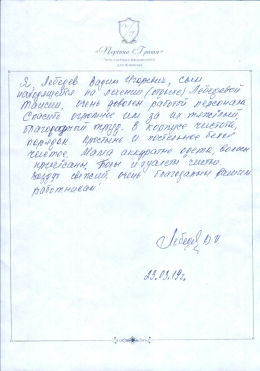 Я, Лебедев Вадим Игоревич, сын
находящейся на лечении Лебедевой
Таисии, очень доволен работой персонала
Спасибо огромное им за их тяжёлый,
благородный труд. В корпусе чистота,
порядок. Простыни и постельное белье
чистое. Мама аккуратно одета, волосы
причёсаны. Полы и туалеты чисты.
Воздух свежий, очень благодарны вашим
работникам!
Лебедев В И
23.03.19г.